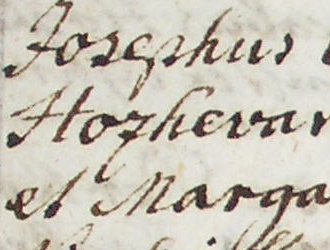 Josephus
Hozhevar
et Marga